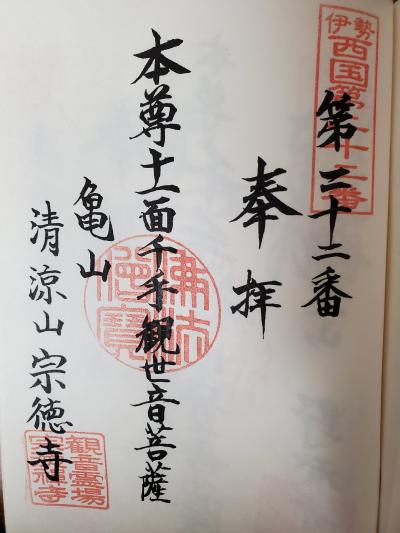 伊勢
西国第二十二番
第二十二番
奉拝
本尊十一面千手観世音菩薩
亀山
清涼山宗徳寺
佛法僧寶
観音霊場
宗徳禅寺